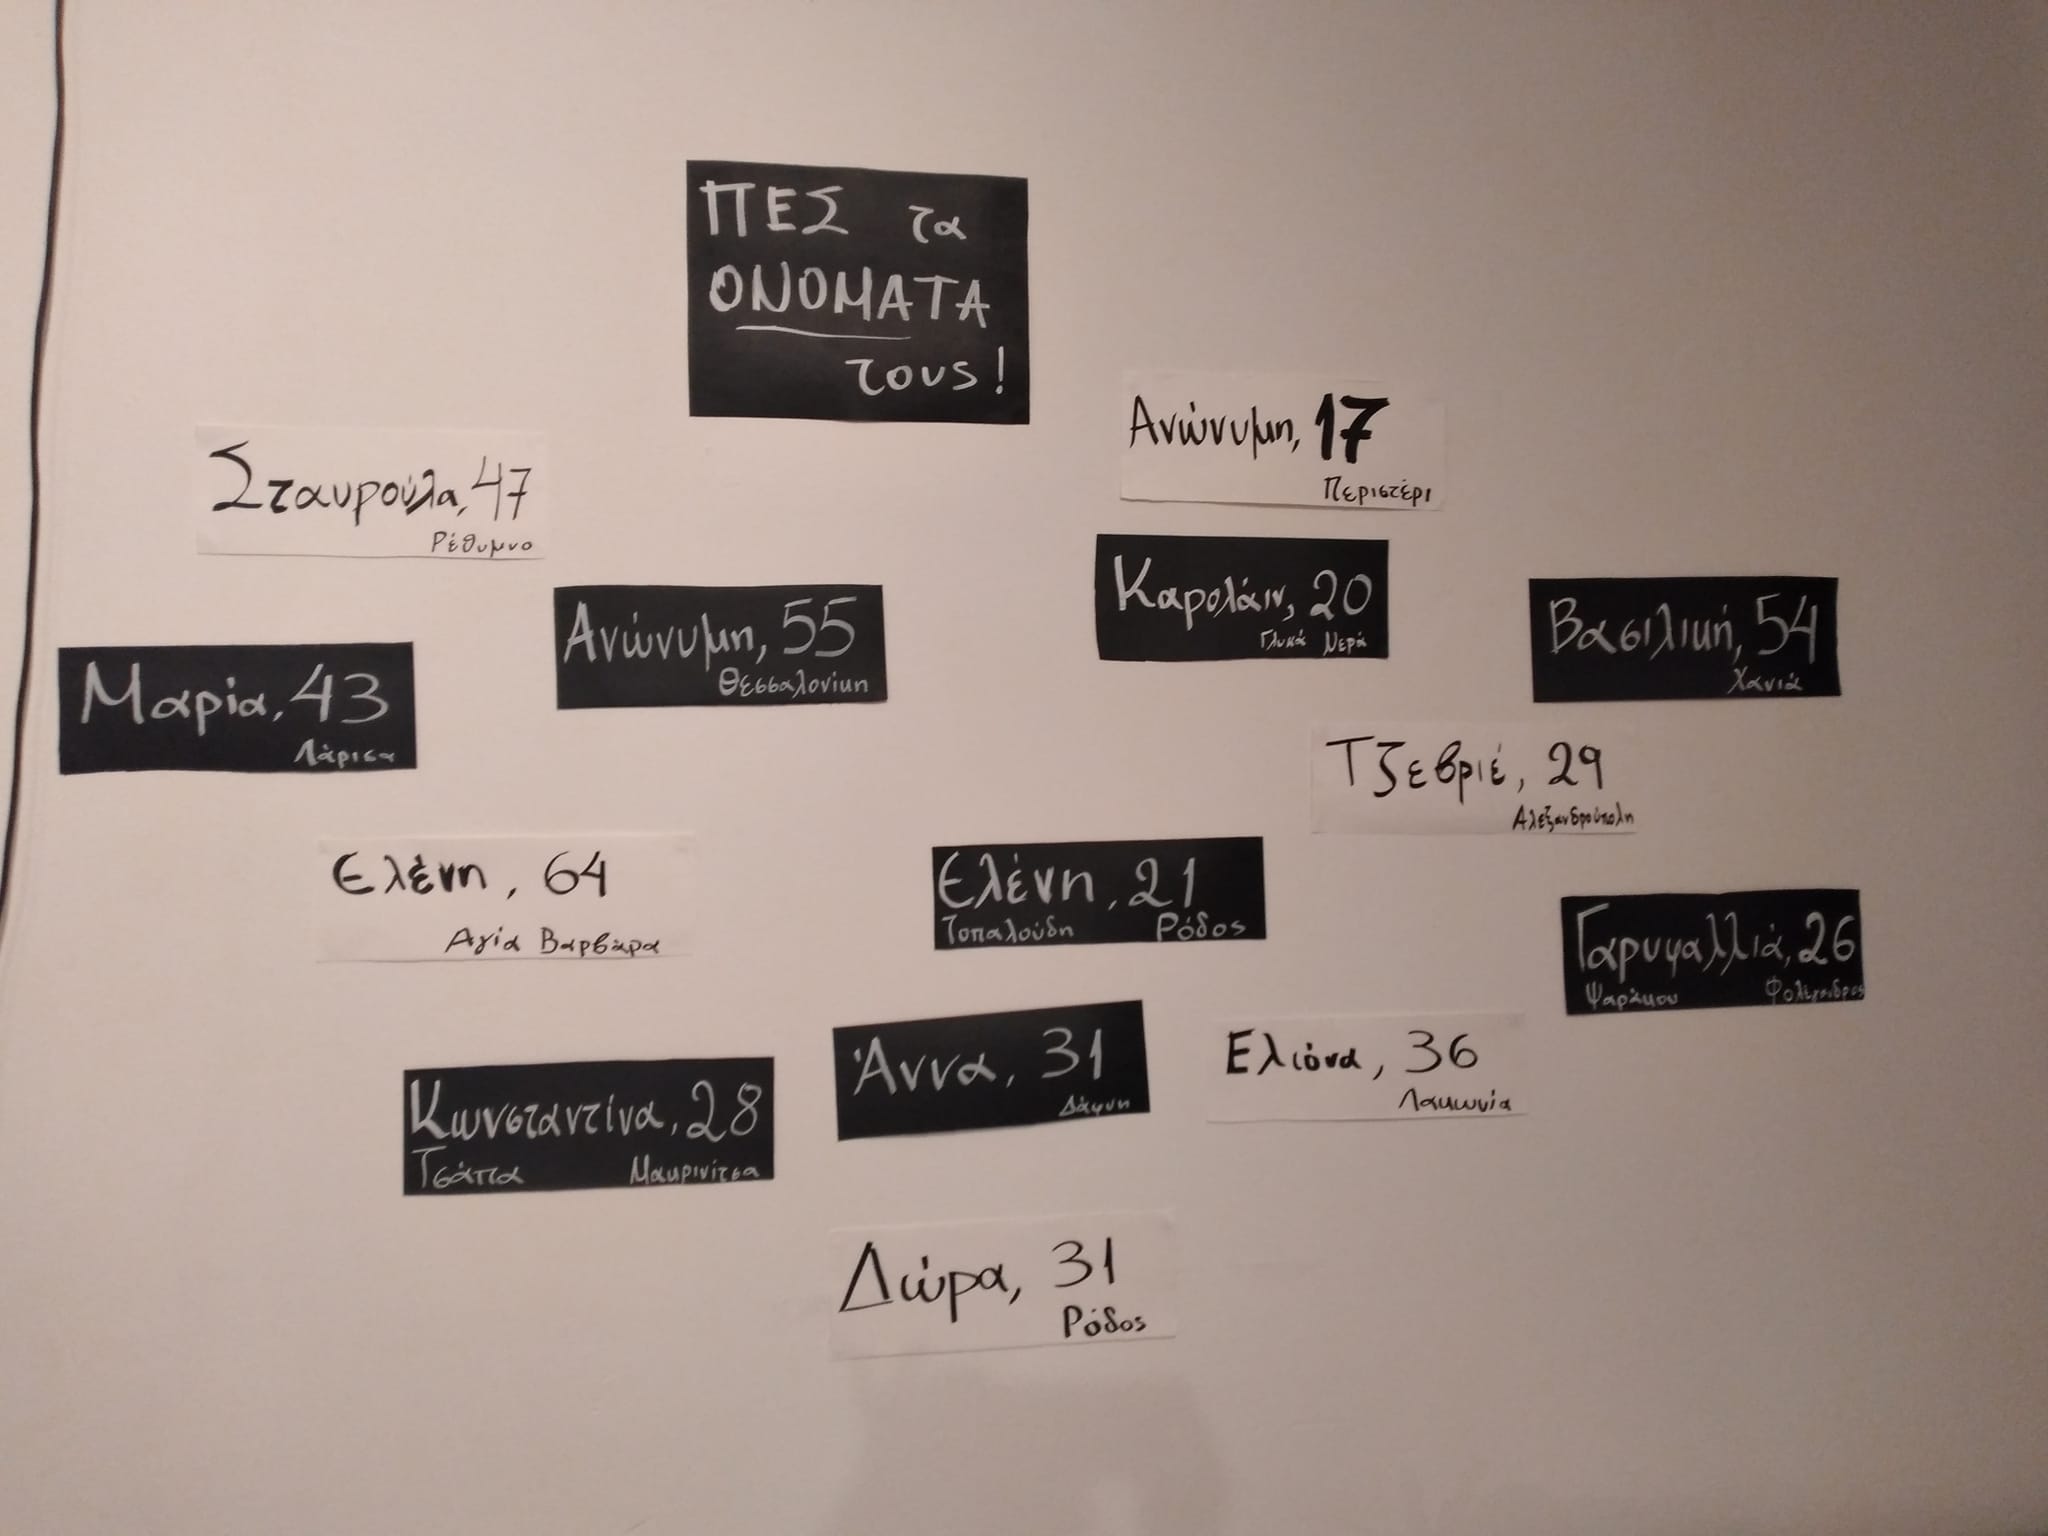 ΠΕΣ τα
ΟΝΟΜΑΤΑ
τους!
Ανώνυμη, 17
Περιστέρι
Σταυρούλα, 47
Ρέθυμνο
Καρολάιν, 20
Γλυκά Νερά
Βασιλική, 54
Χανιά
Ανώνυμη, 55
Θεσσαλονίκη
Μαρία, 43
Λάρισα
Τζεβριέ, 29
Αλεξανδρούπολη
Ελένη, 64
Αγία Βαρβάρα
Ελένη, 21
Τοπαλούδη Ρόδος
Γαρυφαλλιά, 26
Ψαράκου Φολέγανδρος
Άννα, 31
Δάφνη
Ελιόνα, 36
Λακωνία
Κωνσταντίνα, 28
Τσάπα Μακρινίτσα
Δώρα, 31
Ρόδος